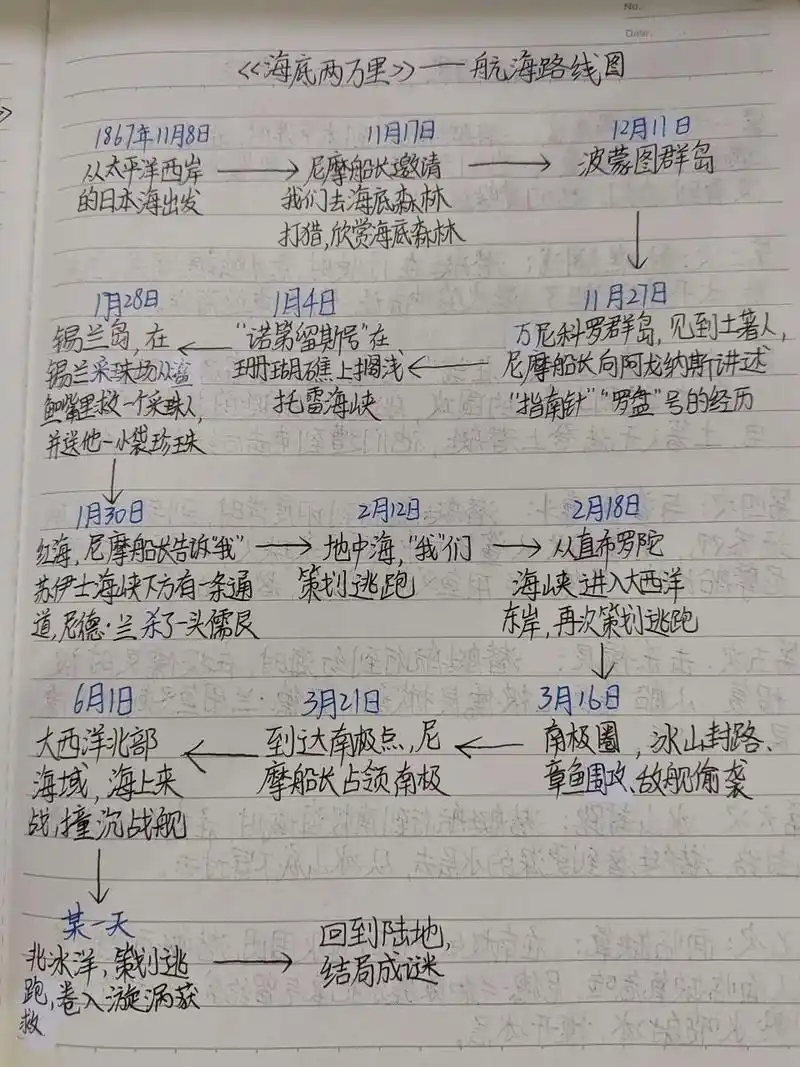 No.
Date.
《海底两万里》——航海路线图
1867年11月8日
从太平洋西岸
的日本海出发
11月17日
尼摩船长邀请
我们去海底森林
打猎,欣赏海底森林
12月11日
波蒙图群岛
11月27日
万尼科罗群岛,见到土著人,
尼摩船长向阿龙纳斯讲述
“指南针”“罗盘”号的经历
1月4日
“诺第留斯号”在
珊瑚礁上搁浅
托雷海峡
1月28日
锡兰岛,在
锡兰采珠场从鲨
鱼嘴里救一个采珠人,
并送他一小袋珍珠
1月30日
红海,尼摩船长告诉“我”
苏伊士海峡下方有一条通
道,尼德·兰杀了一头儒艮
2月12日
地中海,“我”们
策划逃跑
2月18日
从直布罗陀
海峡进入大西洋
东岸,再次策划逃跑
3月16日
南极圈,冰山封路、
章鱼围攻、敌舰偷袭
3月21日
到达南极点,尼
摩船长占领南极
6月1日
大西洋北部
海域,海上来
战,撞沉战舰
某一天
北冰洋,策划逃
跑,卷入漩涡获
救
回到陆地,
结局成谜